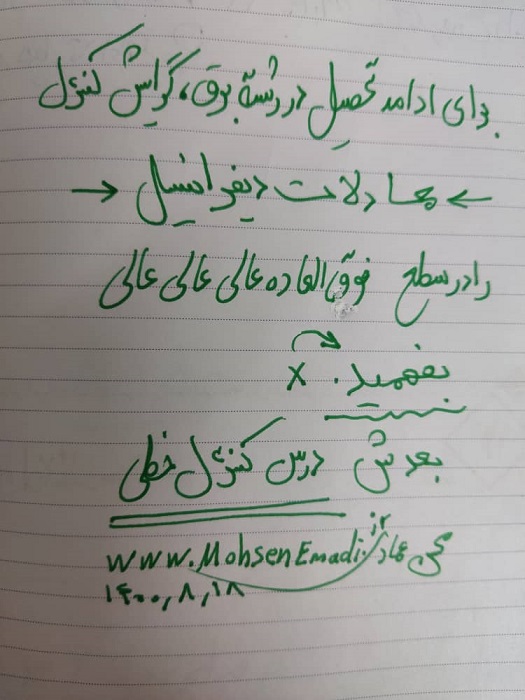 برای ادامه تحصیل در رشتهٔ برق، گرایش کنترل
← معادلات دیفرانسیل →
را در سطح فوق العاده عالی عالی عالی
بفهمید. x
بعدش درس کنترل خطی
محسن عماد www.MohsenEmadi.ir
۱۴۰۰,۸,۱۸